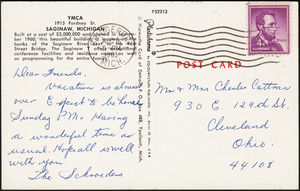 YMCA
1915 Fordney St.
SAGINAW, MICHIGAN
Built at a cost of $3,000,000 and opened in Septem-
ber 1960, this beautiful building is located on the
banks of the Saginaw River
Street Bridge. The Saginaw
offers
conference areas as well as
programming for the entire
Dear Friends,
Vacation is almost
over. Expect to be home
Sunday P.M. Having
a wonderful time as
usual. Hope all is well
with you.
The Schroeders
P52213
MICH.
Plastichrome
POST CARD
U.S. POSTAGE
Mr & Mrs Charles Cattran
930 E 129th St.
Cleveland
Ohio.
44108